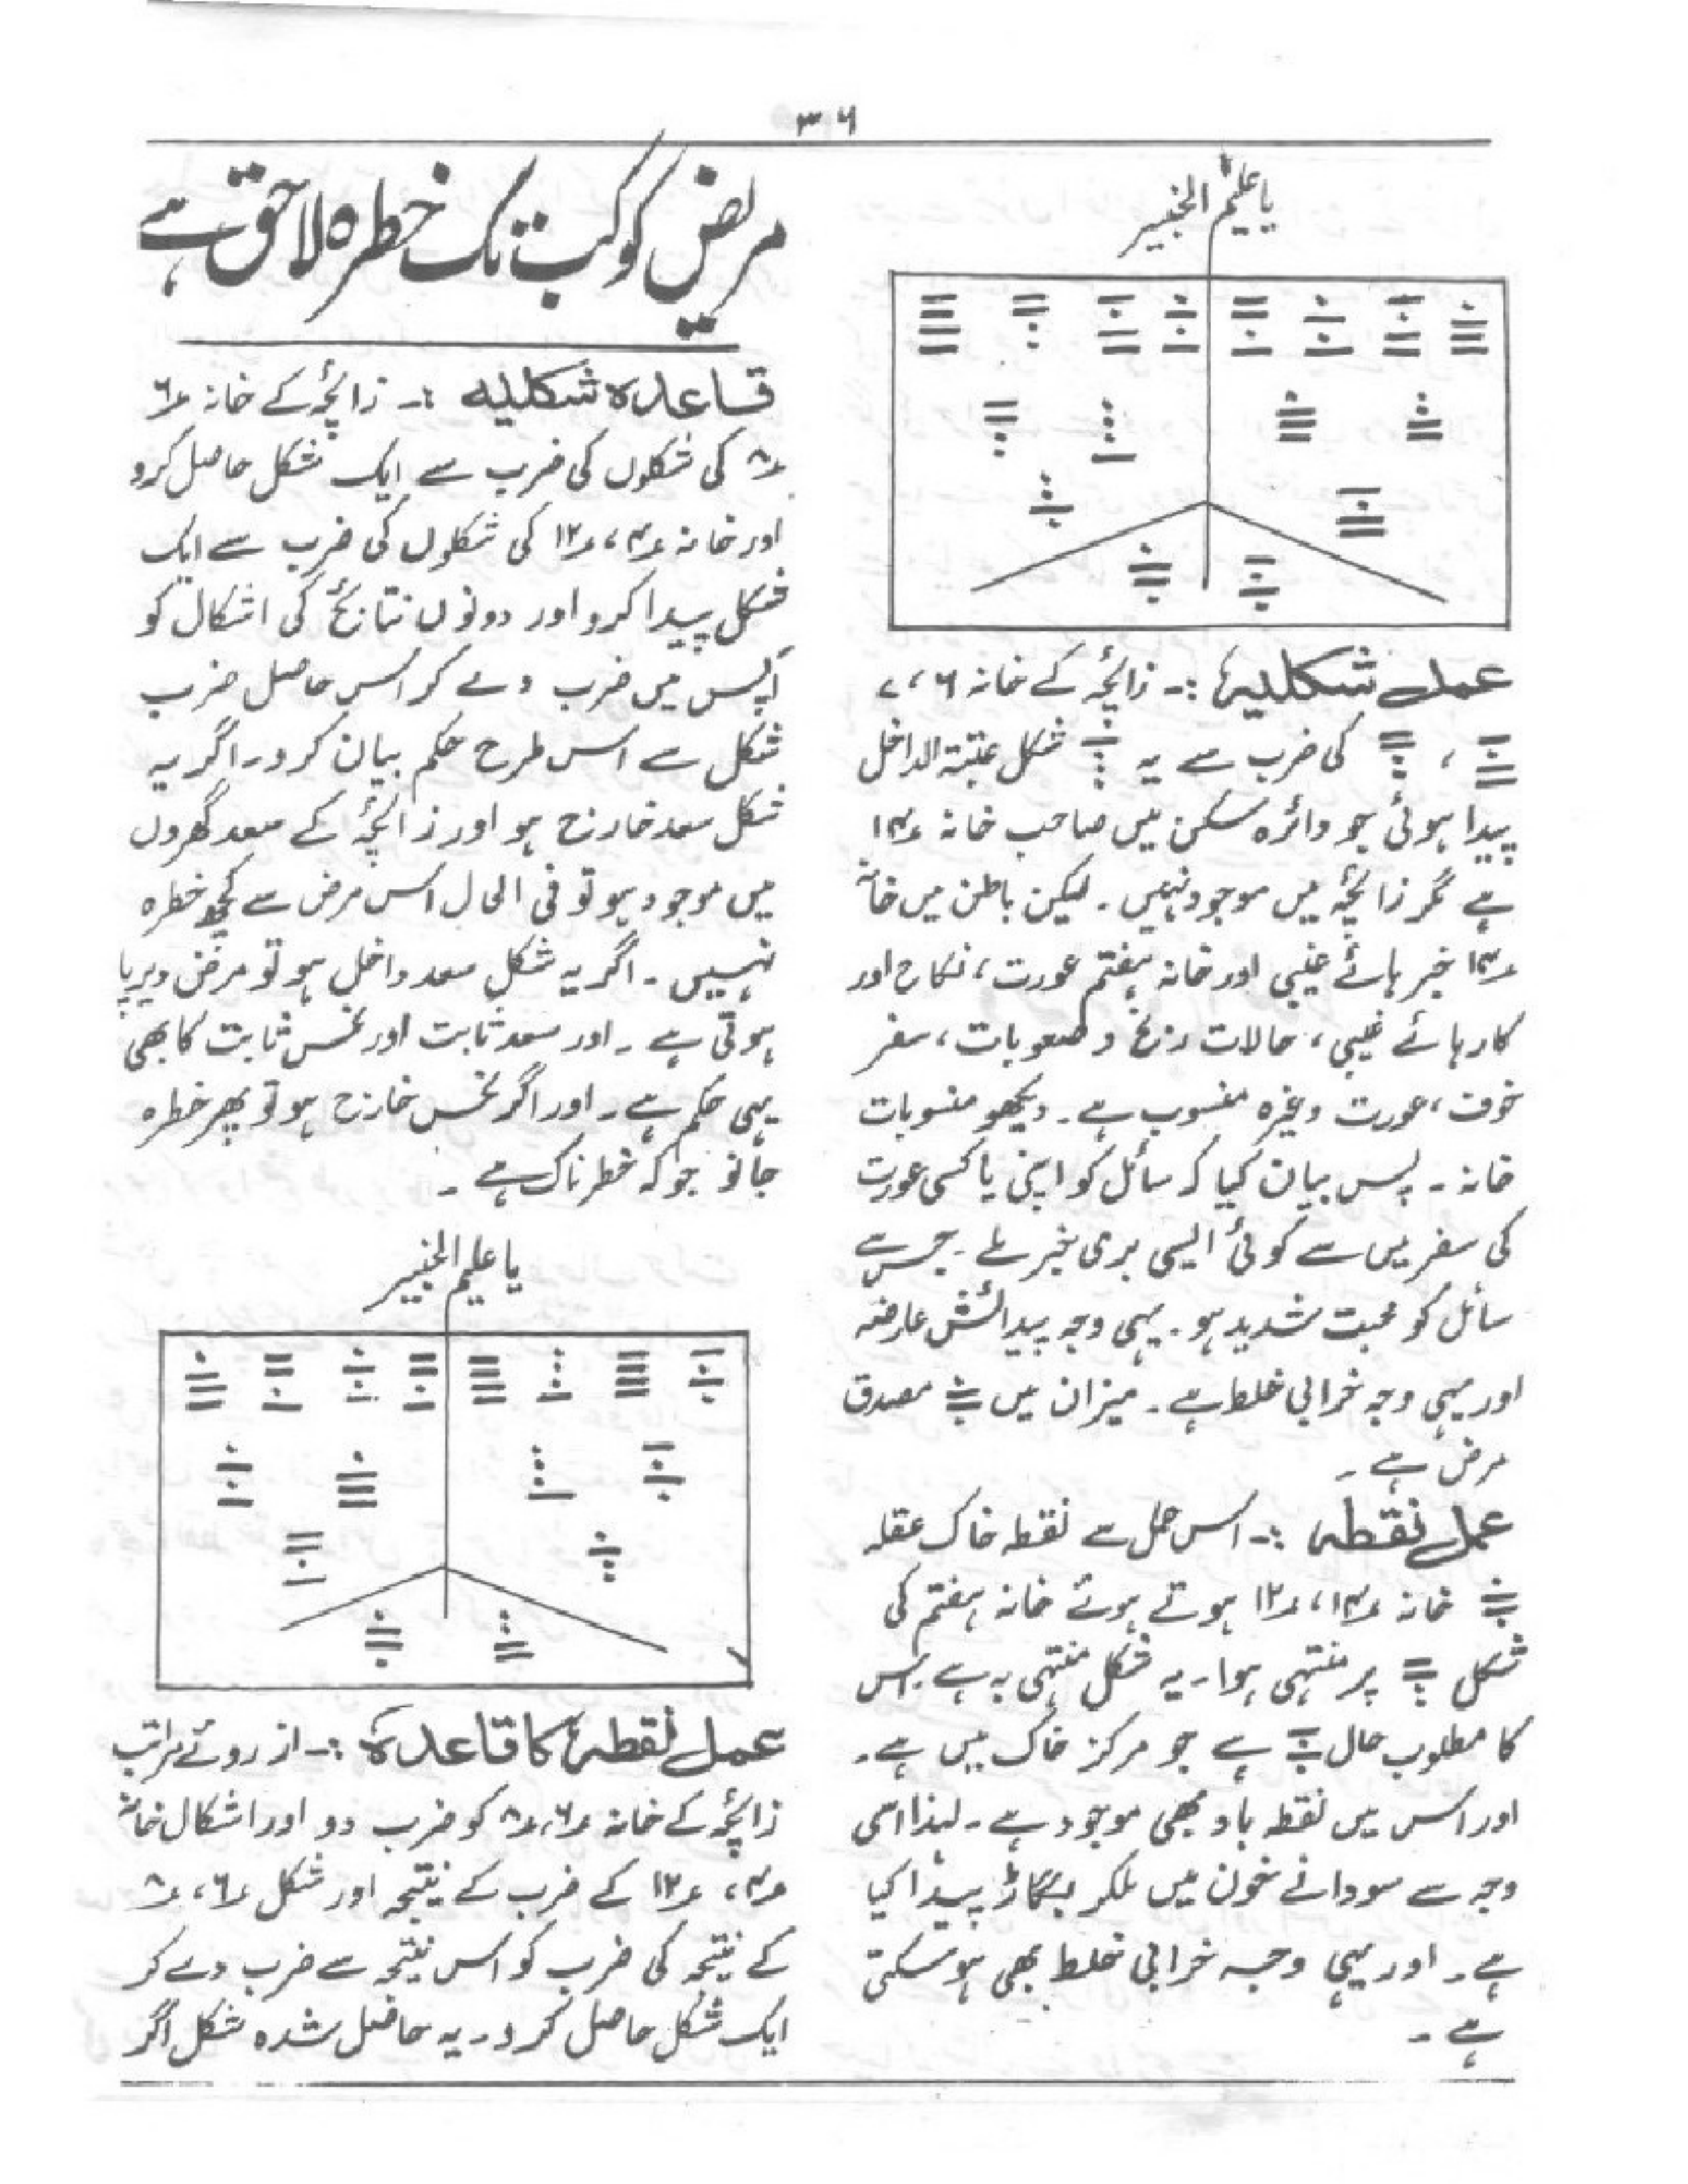 ۳۶
یا علیم الخبیر
عمل شکلیہ :- زائچہ کے خانہ ۶، ۷
، کی ضرب سے یہ شکل عتبۃ الداخل
پیدا ہوئی جو دائرہ سکن میں صاحب خانہ ۱۳
ہے مگر زائچہ میں موجود نہیں ۔ لیکن باطن میں خانہ
۱۳ خبر ہائے غیبی اور خانہ ہفتم عورت ، نکاح اور
کار ہائے غیبی ، حالات رنج و صعوبات ، سفر
خوف ، عورت وغیرہ منسوب ہے ۔ دیکھو منسوبات
خانہ ۔ پس بیان کیا کہ سائل کو اپنی یا کسی عورت
کی سفر میں سے کوئی ایسی بری خبر ملے ۔ جس سے
سائل کو محبت شدید ہو ۔ یہی وجہ پیدائش عارضہ
اور یہی وجہ خرابی خلط ہے ۔ میزان میں مصدق
مرض ہے ۔
عمل نقطہ :- اس عمل سے نقطہ خاک عقلہ
خانہ ۱۳، ۱۲ ہوتے ہوئے خانہ ہفتم کی
شکل پر منتہی ہوا ۔ یہ شکل منتہی بہ ہے ۔ اس
کا مطلوب حال ہے جو مرکز خاک میں ہے ۔
اور اس میں نقطہ باد بھی موجود ہے ۔ لہذا اسی
وجہ سے سودا نے خون میں ملکر بگاڑ پیدا کیا
ہے ۔ اور یہی وجہ خرابی خلط بھی ہو سکتی
ہے ۔
مریض کو کب تک خطرہ لاحق ہے
قاعدہ شکلیہ :- زائچہ کے خانہ ۶
۸ کی شکلوں کی ضرب سے ایک شکل حاصل کرو
اور خانہ ۴، ۱۲ کی شکلوں کی ضرب سے ایک
شکل پیدا کرو اور دونوں نتائج کی اشکال کو
آپس میں ضرب دے کر اس حاصل ضرب
شکل سے اس طرح حکم بیان کرو ۔ اگر یہ
شکل سعد خارج ہو اور زائچہ کے سعد گھروں
میں موجود ہو تو فی الحال اس مرض سے کچھ خطرہ
نہیں ۔ اگر یہ شکل سعد داخل ہو تو مرض دیرپا
ہوتی ہے ۔ اور سعد ثابت اور نحس ثابت کا بھی
یہی حکم ہے ۔ اور اگر نحس خارج ہو تو پھر خطرہ
جانو جو کہ خطرناک ہے ۔
یا علیم الخبیر
عمل نقطہ کا قاعدہ :- از روئے مراتب
زائچہ کے خانہ ۶، ۸ کو ضرب دو اور اشکال خانہ
۴، ۱۲ کے ضرب کے نتیجہ اور شکل ۶، ۸
کے نتیجہ کی ضرب کو اس نتیجہ سے ضرب دے کر
ایک شکل حاصل کرو ۔ یہ حاصل شدہ شکل اگر